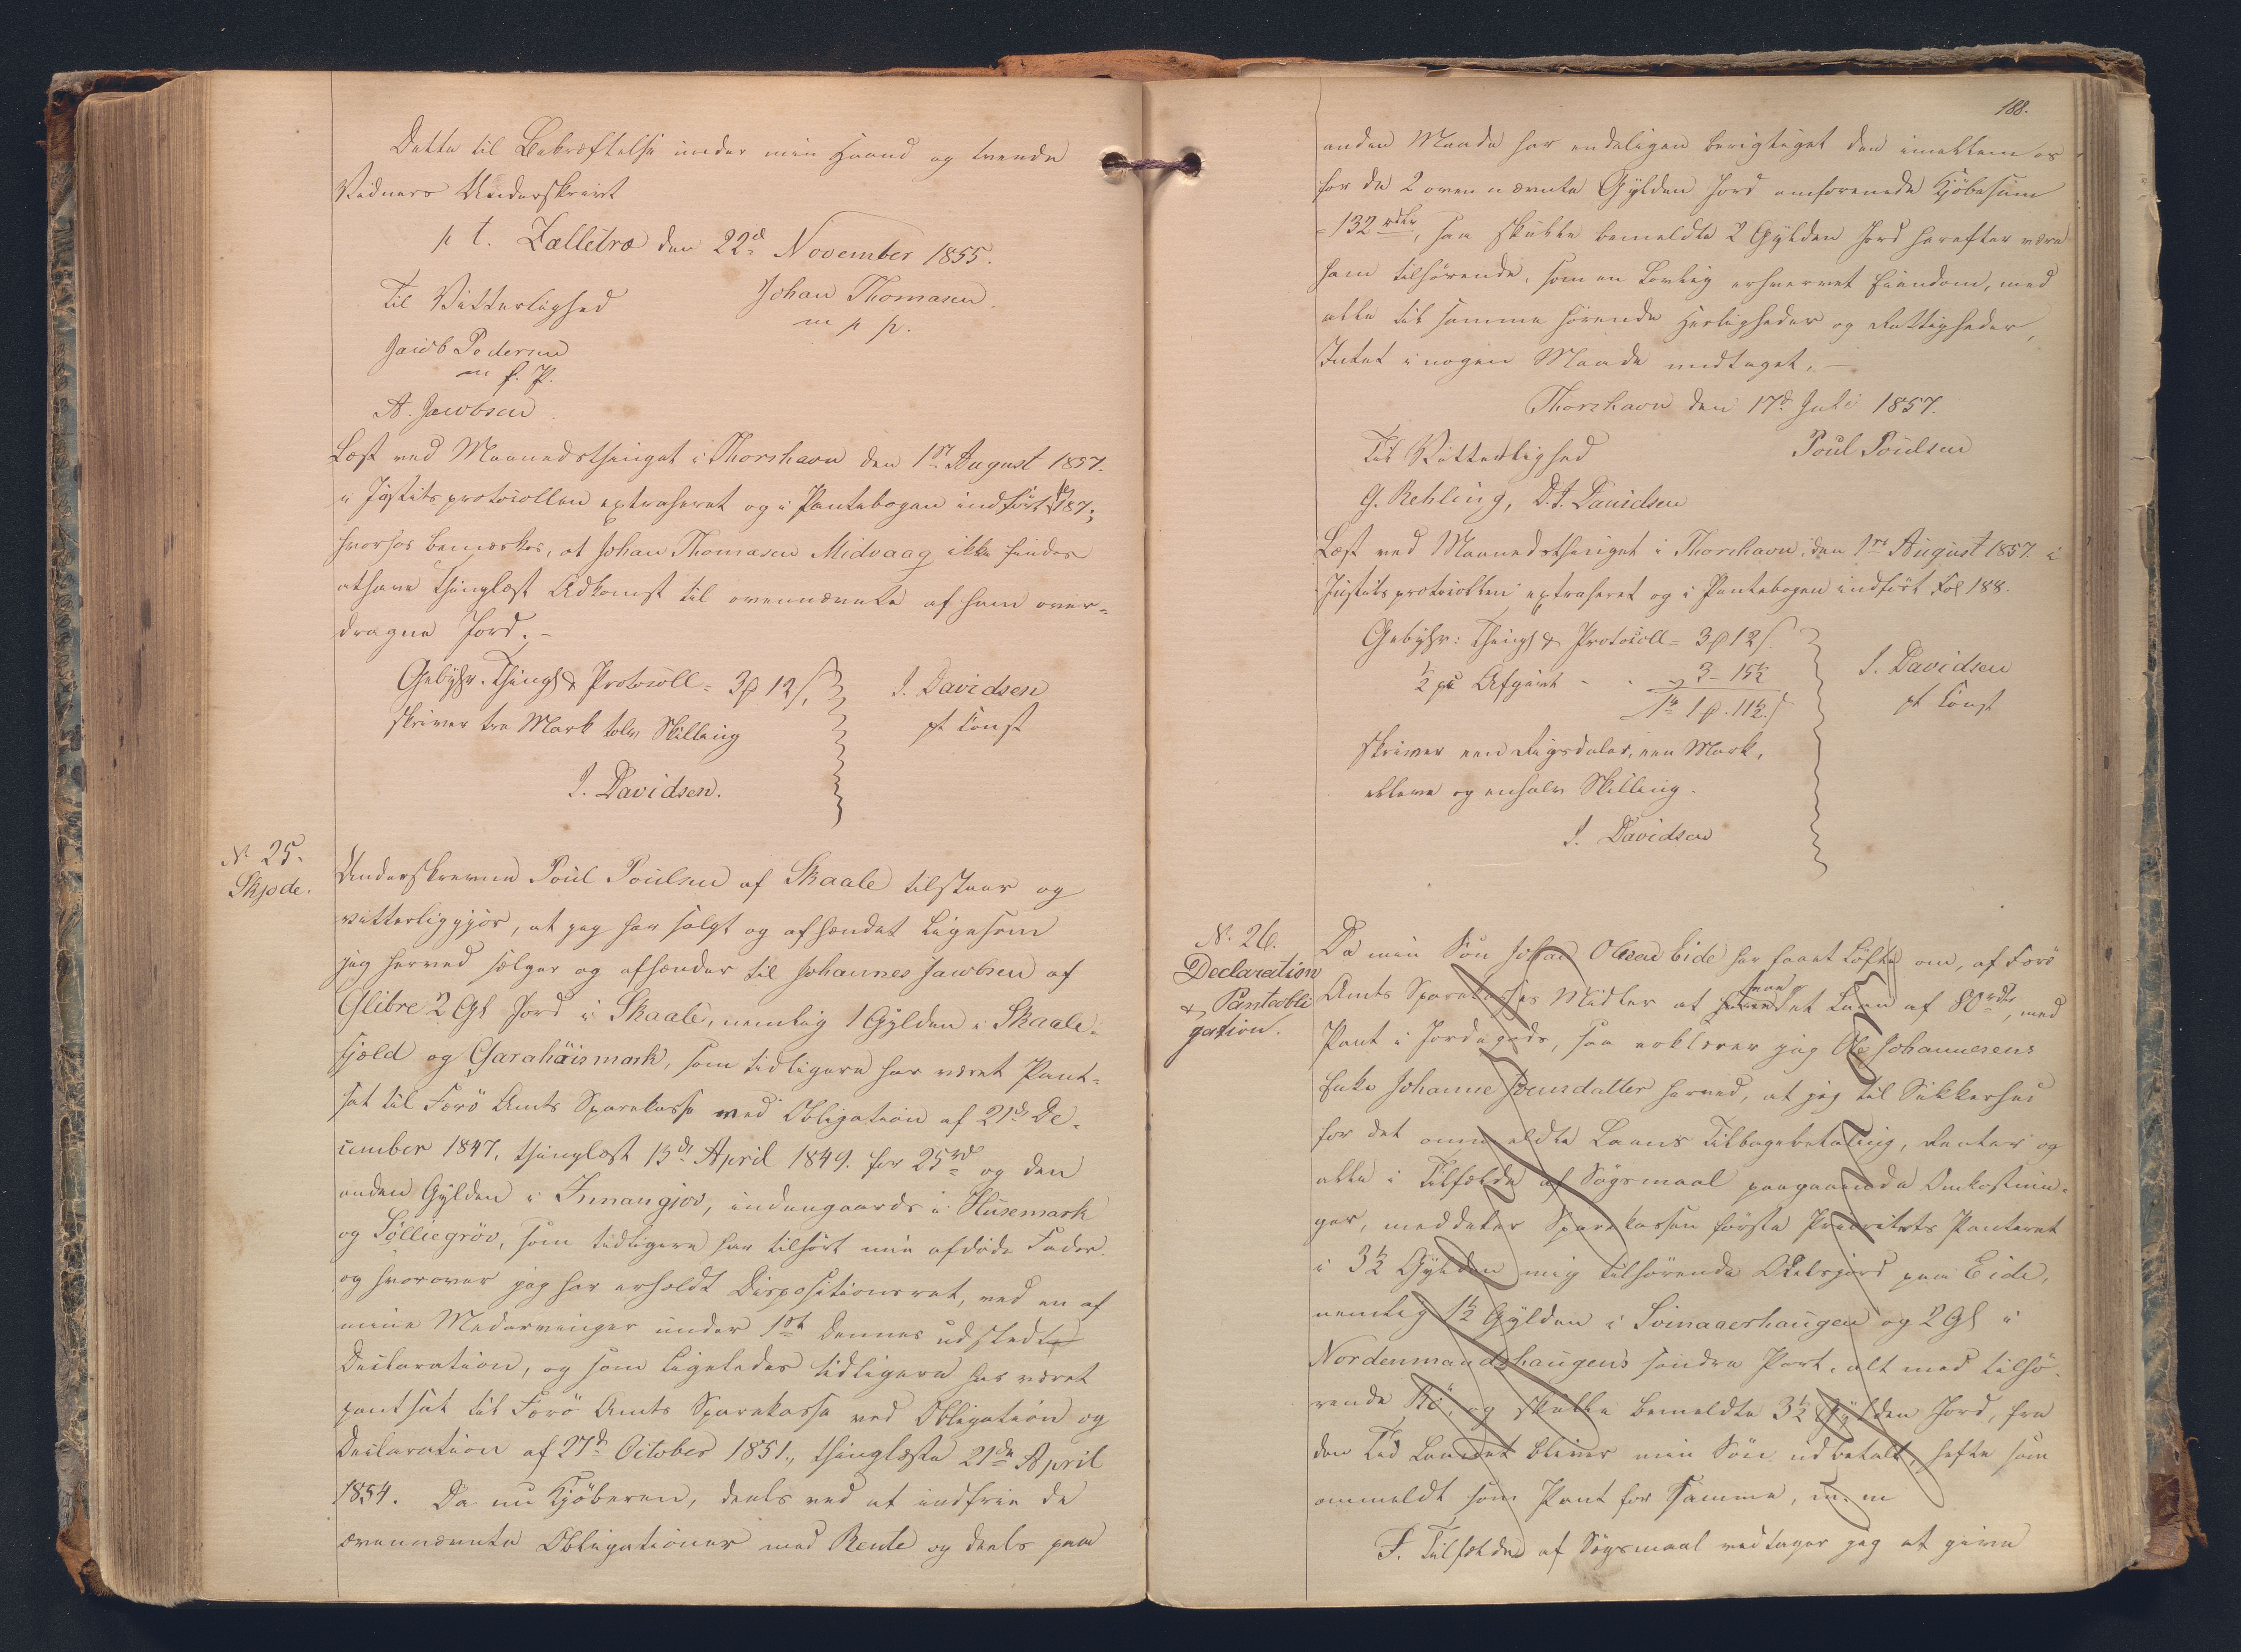 Dette til Bekræftelse under min Haand og tvende
Vidners Underskrivt
p t. Zelletræ den 22d November 1855.
Til Vitterlighed
Johan Thomasen.
m p p.
Jacob Pedersen
m f. P.
A. Jacobsen.
Læst ved Maanedsthinget i Thorshavn den 1st August 1857.
i Justitsprotocollen extraheret og i Pantebogen indført fol 187;
hvorhos bemærkes, at Johan Thomasen Midvaag ikke findes
at have thinglæst Adkomst til ovennævnte af ham over-
dragne Jord. -
Gebyhr. Thingl & Protocoll = 3 ℳ 12 ß,
skriver tre Mark tolv Skilling
J. Davidsen.
J. Davidsen
pt Const
N. 25.
Skjøde.
Underskrevne Poul Poulsen af Skaale tilstaaer og
vitterliggjør, at jeg har solgt og afhændet ligesom
jeg herved sælger og afhænder til Johannes Jacobsen af
Glibre 2 Gl Jord i Skaale, nemlig 1 Gylden i Skaale-
fjæld og Garahúismark, som tidligere har været Pant-
sat til Færö Amts Sparekasse med Obligation af 21de De-
cember 1847, thinglæst 13de April 1849. for 25rd og den
anden Gylden i Innangjov, indengaards i Húsemark
og Sølliegröv, som tidligere har tilhört min afdøde Fader.
og hvorover jeg har erholdt Dispositionsret, ved en af
mine Medarvinger under 1st dennes udstedt
Declaration, og som ligeledes tidligere har været
pantsat til Færö Amts Sparekasse ved Obligation og
Declaration af 27d October 1851., thinglæste 21de April
1854. Da nu Kjöberen, deels ved at indfrie de
ovennævnte Obligationer med Rente og deels paa
188.
anden Maade har endeligen berigtiget den imellem os
for de 2 ovennævnte Gylden Jord omforenede Kjöbesum
= 132 rdlr, saa skulle bemeldte 2 Gylden Jord herefter være
ham tilhörende, som en Lovlig erhvervet Eiendom, med
alle til samme hörende Herligheder og Rettigheder,
Intet i nogen Maade undtaget. —
Thorshavn den 17d Juli 1857.
Til Vitterlighed
Poul Poulsen
G. Rehling, D. J. Danielsen
Læst ved Maanedsthinget i Thorshavn, den 1ste August 1857. i
Justitsprotocollen extraheret og i Pantebogen indfört Fol 188.
Gebyhr: Thingl & Protocoll = 3 ℳ 12 ß.
½ pC Afgivt - - " 3 - 15½
1rd 1 ℳ. 11½ ß
skriver een Rigsdaler, een Mark,
elleve og enhalv Skilling.
J. Davidsen
J. Davidsen
pt Const
N. 26.
Declaration
& Panteobli
gation.
Da min Sön Johan Olsen Eide har faaet Löfte om, af Færö
Amts Sparekasses Midler at faae et Laan af 80 rdlr, med
Pant i Jordegods, saa erklærer jeg Ole Johannesens
Enke Johanne Joensdatter herved, at jeg til Sikkerhed
for det ommeldte Laans Tilbagebetaling, Renter og
alle i Tilfælde af Sögsmaal paagaaende Omkostnin-
ger, meddeler Sparekassen förste Prioritets Panteret
i 3½ Gylden mig tilhörende Odelsjord paa Eide,
nemlig 1½ Gylden i Svinaaerhaugen og 2 Gl i
Nordenmandshaugens söndre Part, alt med tilhö-
rende Rö, og skulle bemeldte 3½ Gylden Jord, fra
den Tid Laanet bliver min Sön udbetalt, hefte som
ommeldt som Pant for Samme, m. m
I. Tilfælde af Sögsmaal vedtager jeg at give